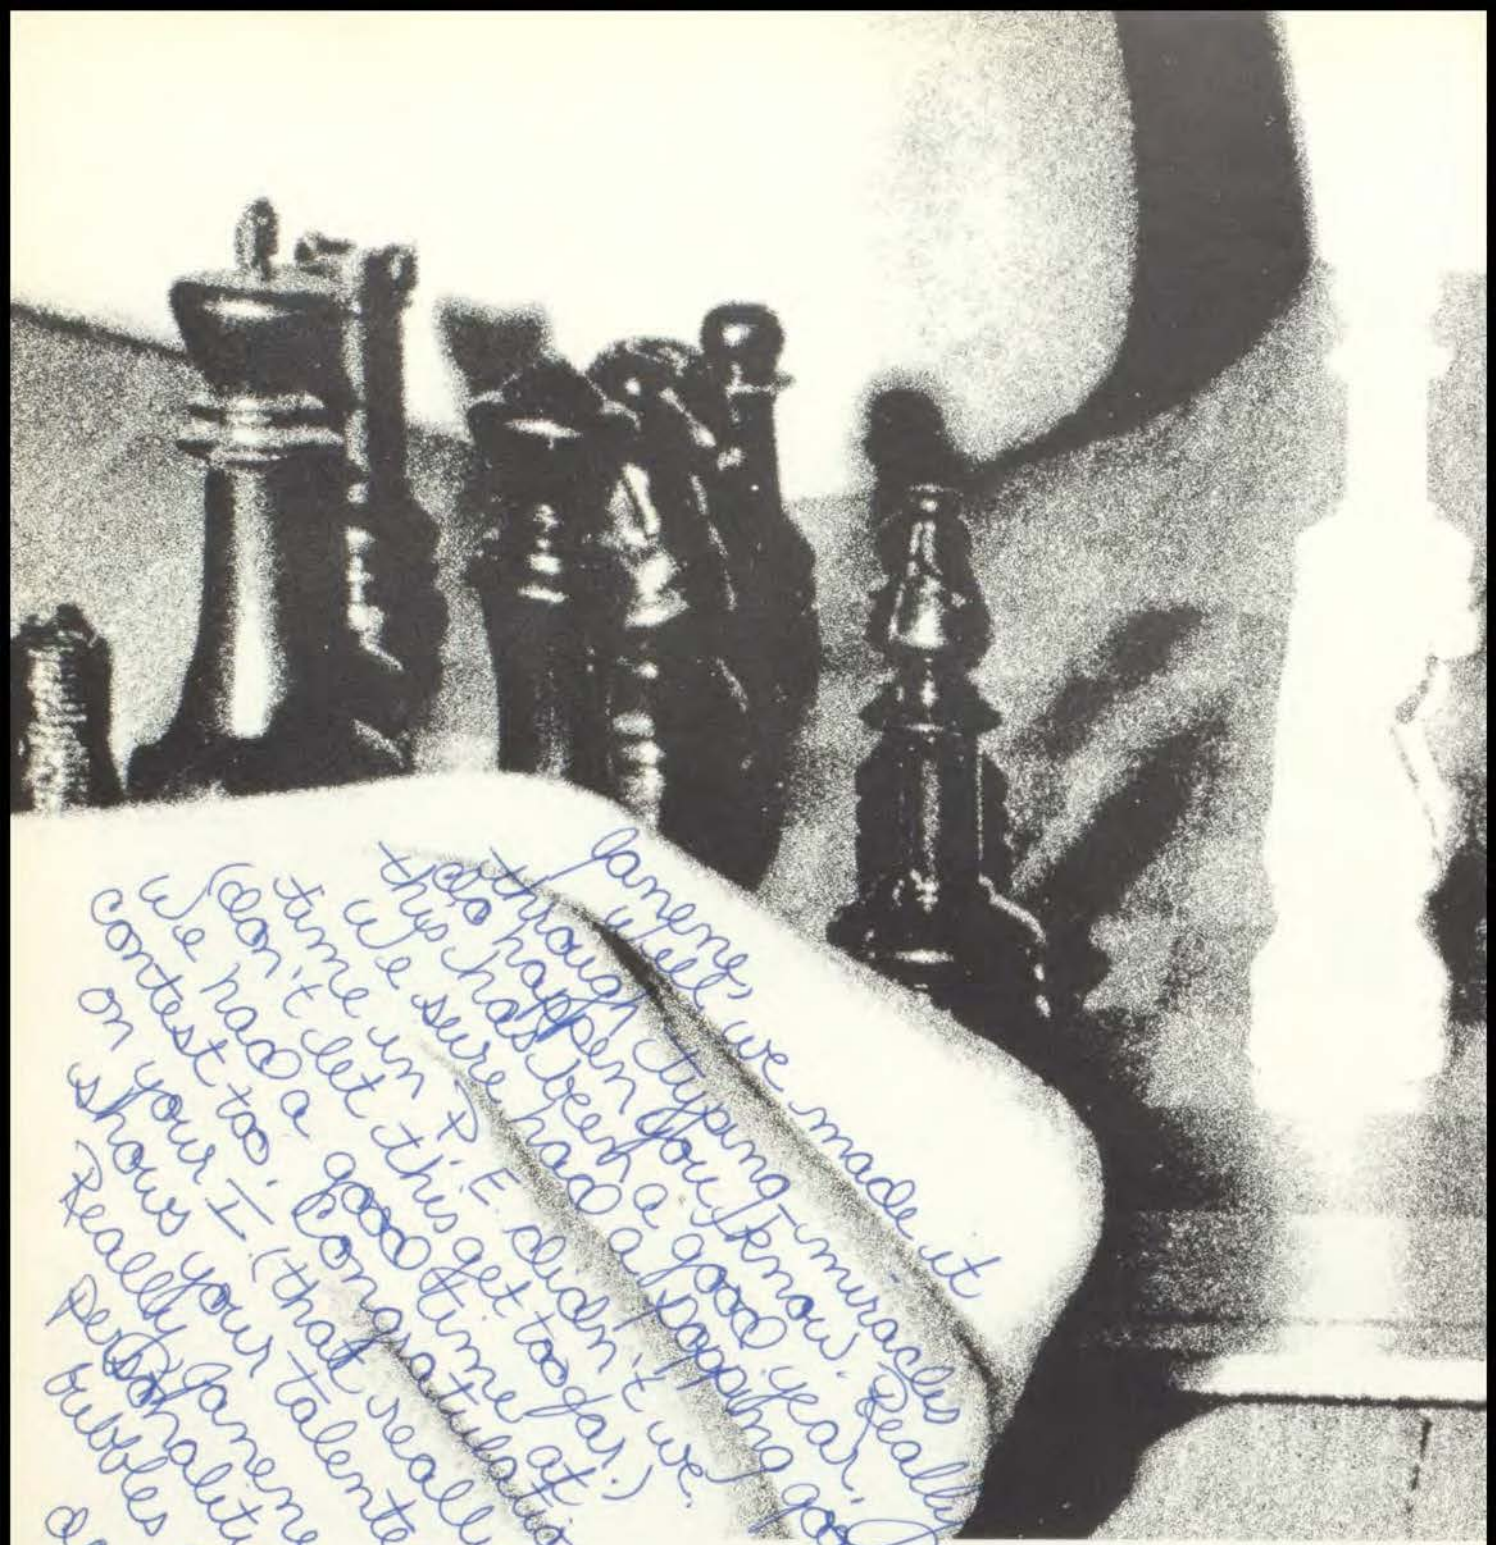 Janene,
Well, we made it
through typing - miracles
do happen you know. Really
this has been a good year.
We sure had a popping good
time in P.E. didn't we.
(don't let this get too far.)
We had a good time at
contest too. Congratulations
on your I (that really
shows your talent
Really Janene
personality
bubbles